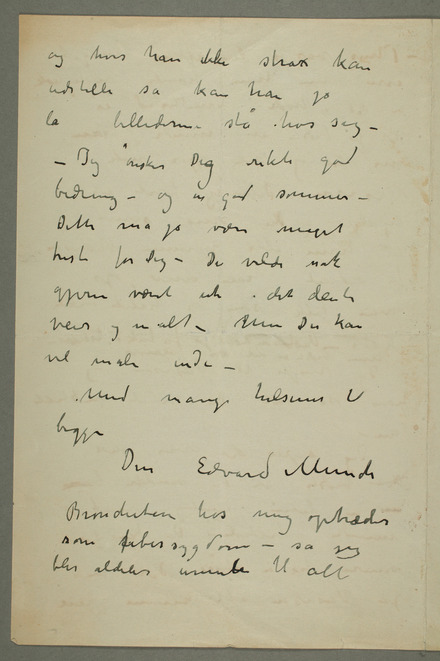 og hvis han ikke strax kan
udstille så kan han jo
la billederne stå hos sig –
– Jeg ønsker Dig rikti god
bedring – og en god sommer –
Dette må jo være meget
trist for Dig – Du vilde nok
gjerne været ute i det deilige
veir og malt – Men Du kan
vel male inde –
Med mange hilsener til
begge
Din Edvard Munch
Bronchiten hos mig optræder
som febersygdom – så jeg
blir aldeles til alt